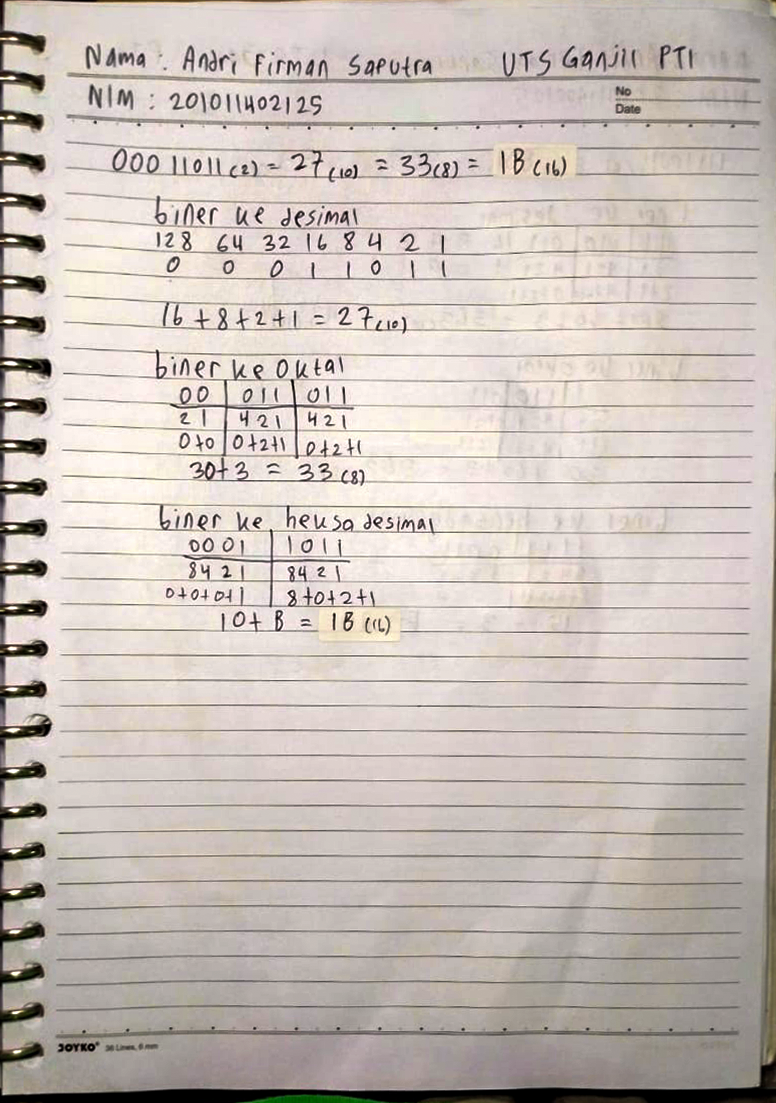 Nama : Andri Firman Saputra UTS Ganjil PTI
NIM : 201011402125
No
Date
00011011(2) = 27(10) = 33(8) = 1B(16)
biner ke desimal
128 64 32 16 8 4 2 1
0 0 0 1 1 0 1 1
16+8+2+1 = 27(10)
biner ke Oktal
00 | 011 | 011
21 | 421 | 421
0+0 | 0+2+1 | 0+2+1
30+3 = 33(8)
biner ke heksa desimal
0001 | 1011
8421 | 8421
0+0+0+1 | 8+0+2+1
10+B = 1B(16)
JOYKO® 36 Lines, 8 mm